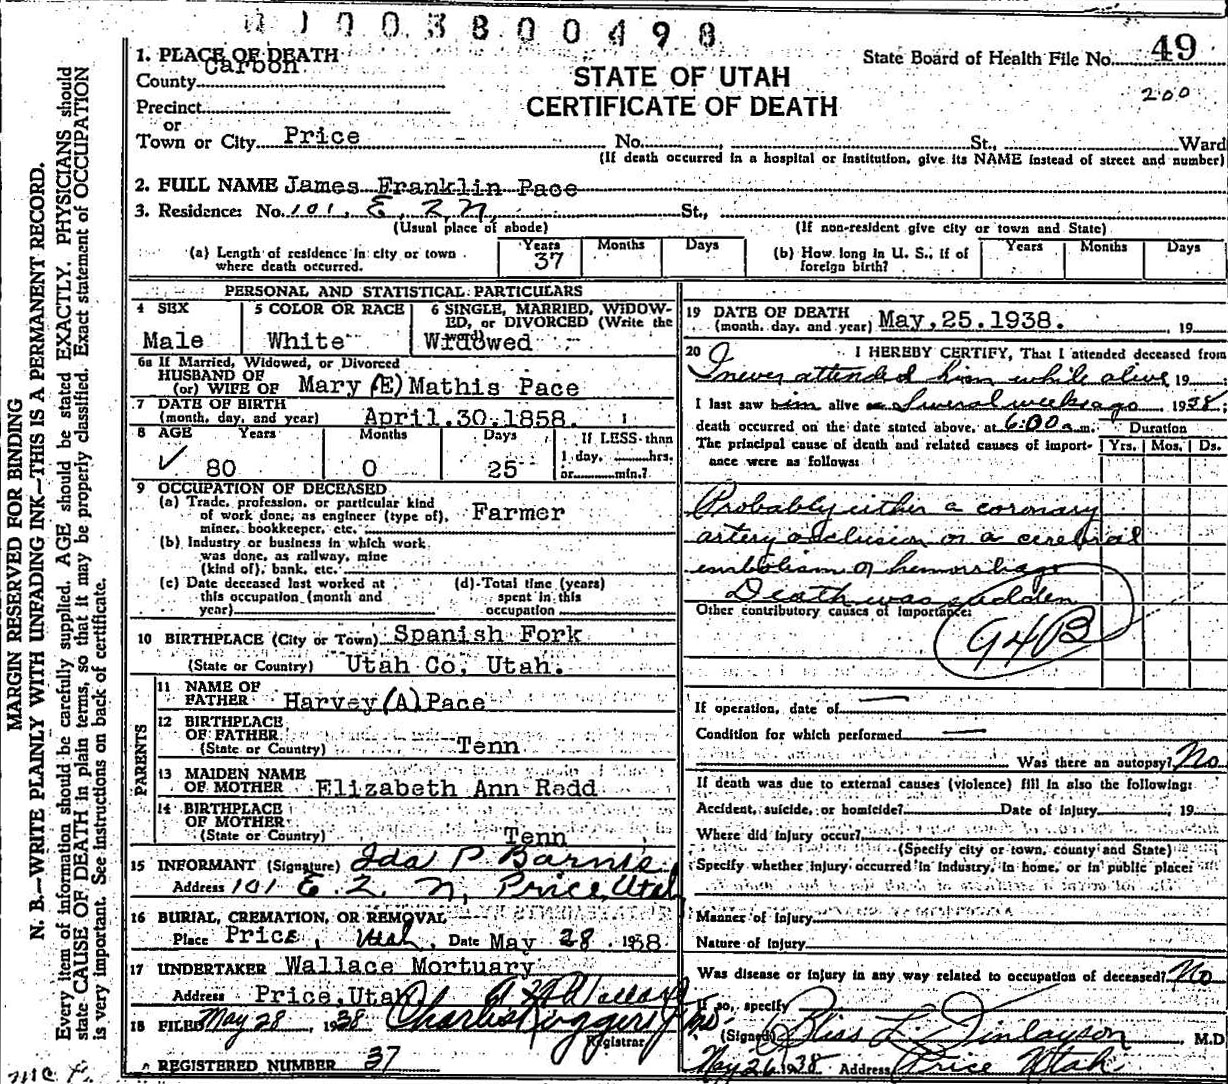 003800498
1. PLACE OF DEATH
State Board of Health File No. 49
County Carbon
STATE OF UTAH
200
Precinct
CERTIFICATE OF DEATH
or
Town or City Price No. St., Ward
(If death occurred in a hospital or institution, give its NAME instead of street and number)
2. FULL NAME James Franklin Pace
3. Residence: No. 101, E, 2, N, St.,
(Usual place of abode) (If non-resident give city or town and State)
(a) Length of residence in city or town where death occurred. Years 37 Months Days
(b) How long in U. S., if of foreign birth? Years Months Days
PERSONAL AND STATISTICAL PARTICULARS
4 SEX Male
5 COLOR OR RACE White
6 SINGLE, MARRIED, WIDOWED, or DIVORCED (Write the Widowed
6a If Married, Widowed, or Divorced
HUSBAND OF
(or) WIFE OF Mary (E) Mathis Pace
7 DATE OF BIRTH
(month, day, and year) April.30.1858.
8 AGE Years Months Days If LESS than
80 0 25 1 day, hrs.
or min.?
9 OCCUPATION OF DECEASED
(a) Trade, profession, or particular kind
of work done, as engineer (type of), Farmer
miner, bookkeeper, etc.
(b) Industry or business in which work
was done, as railway, mine
(kind of), bank, etc.
(c) Date deceased last worked at
this occupation (month and
year)
(d) Total time (years)
spent in this
occupation
10 BIRTHPLACE (City or Town) Spanish Fork
(State or Country) Utah Co, Utah.
PARENTS
11 NAME OF
FATHER Harvey (A) Pace
12 BIRTHPLACE
OF FATHER
(State or Country) Tenn
13 MAIDEN NAME
OF MOTHER Elizabeth Ann Redd
14 BIRTHPLACE
OF MOTHER
(State or Country) Tenn
15 INFORMANT (Signature) Ida P Barnes
Address 101 E. 2. N, Price, Utah
16 BURIAL, CREMATION, OR REMOVAL
Place Price, Utah, Date May 28, 1938
17 UNDERTAKER Wallace Mortuary
Address Price, Utah
18 FILED May 28, 1938
Registrar
REGISTERED NUMBER 37
19 DATE OF DEATH
(month, day, and year) May, 25.1938. , 19
20 I HEREBY CERTIFY, That I attended deceased from
I never attended him while alive 19
I last saw him alive Several weeks ago 1938
death occurred on the date stated above, at 6:00 a.m. Duration
The principal cause of death and related causes of importance were as follows: Yrs. Mos. Ds.
Probably either a coronary
artery occlusion or a cerebral
embolism or hemorrhage
Death was sudden
Other contributory causes of importance:
94B
If operation, date of
Condition for which performed
Was there an autopsy? No
If death was due to external causes (violence) fill in also the following:
Accident, suicide, or homicide? Date of injury, 19
Where did injury occur?
(Specify city or town, county and State)
Specify whether injury occurred in industry, in home, or in public place:
Manner of injury
Nature of injury
Was disease or injury in any way related to occupation of deceased? No
If so, specify
(Signed) Bliss L. Finlayson M.D
May 26 1938 Address Price Utah
MARGIN RESERVED FOR BINDING
N. B.—WRITE PLAINLY WITH UNFADING INK—THIS IS A PERMANENT RECORD.
Every item of information should be carefully supplied. AGE should be stated EXACTLY. PHYSICIANS should
state CAUSE OF DEATH in plain terms, so that it may be properly classified. Exact statement of OCCUPATION
is very important. See instructions on back of certificate.